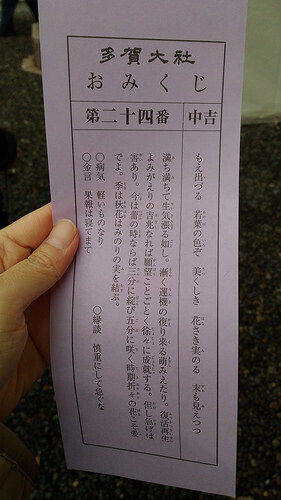 多賀大社
おみくじ
第二十四番
中吉
もえ出づる　若葉の色ぞ　美くしき　花さき実のる　末も見えつつ
満ち満ちて生気漲る如し。漸く運機の復り来る萌みえたり。復活再生
よみがえりの吉兆なれば願望ことごとく徐々に成就する。但し急げば
害あり。今は蕾の時ならば三分に綻び五分に咲く時期折々の花こそ愛
でよ。季は秋花はみのりの実を結ぶ。
〇病気　軽いものなり　〇縁談　慎重にして急ぐな
〇金言　果報は寝てまて